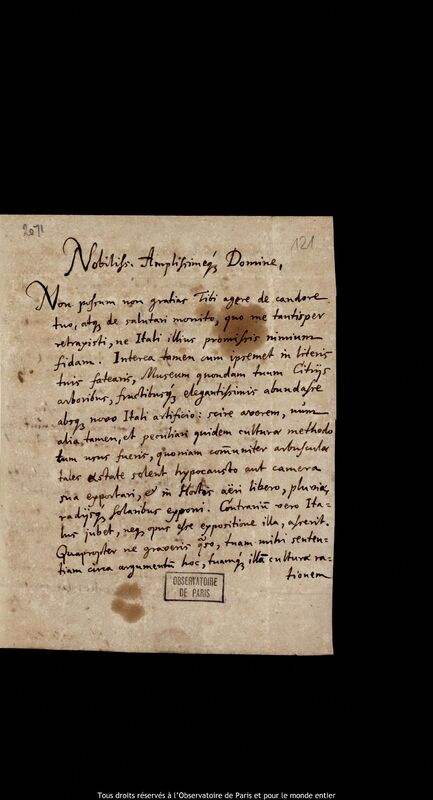 2071
121
Nobiliss. Amplissimeq₃ Domine,
Non possum non gratias Tibi agere de candore
tuo, atq₃ de salutari monito, quo me tantisper
retraxisti, ne Itali illius promissis nimium
fidam. Interea tamen cum ipsemet in literis
tuis fatearis, Museum quondam tuum Citrijs
arboribus, fructibusq₃ elegantissimis abundasse
absq₃ novo Itali artificio: scire averem, num
alia tamen, et peculiari quidem culturæ methodo
tum usus fueris, quoniam com̄uniter arbusculæ
tales æstate solent hypocausto aut camera
sua exportari, & in Hortis aëri libero, pluviæ,
radijsq₃ solaribus exponi. Contrariũ vero Ita-
lus jubet, neq₃ opus esse expositione illa, asserit.
Quapropter ne graveris q̃so, tuam mihi senten-
tiam circa argumentũ hoc, tuamq₃ illã culturæ ra-
tionem
OBSERVATOIRE
DE PARIS
Tous droits réservés à l'Observatoire de Paris et pour le monde entier